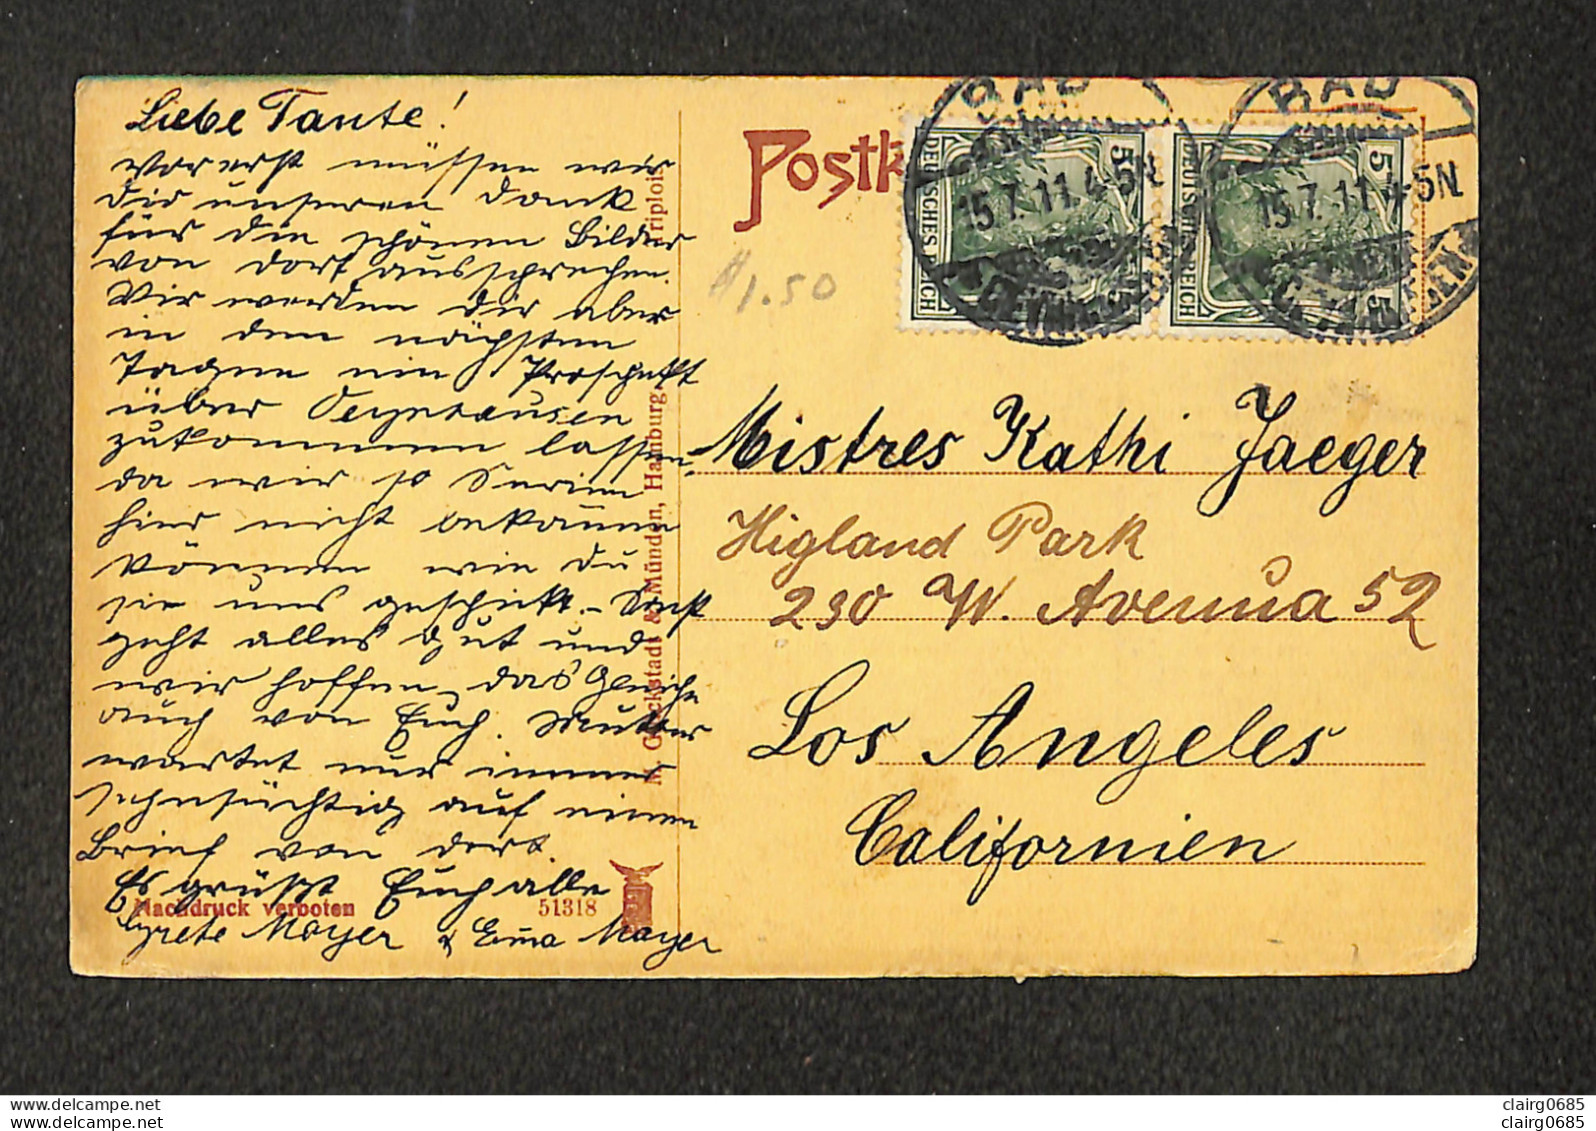 Liebe Tante!
Vorerst müssen wir
dir unseren Dank
für die schönen Bilder
von dort aussprechen.
Wir werden dir aber
in den nächsten
Tagen ein Proschekt
über Oeynhausen
zukommen lassen,
da wir so Serien
hier nicht bekommen
können wie du
sie uns geschickt. - Sonst
geht alles gut und
wir hoffen das Gleiche
auch von Euch. Mutter
wartet nur immer
sehnsüchtig auf einen
Brief von dort.
Es grüßt Euch alle
Grete Mayer & Erna Mayer
Nachdruck verboten 51318
M. Glückstadt & Münden, Hamburg
Postk
$1.50
BAD
15.7.11.4-5N
OEYNHAUSEN
DEUTSCHES REICH
5 5
BAD
15.7.11.4-5N
OEYNHAUSEN
DEUTSCHES REICH
5 5
Mistres Kathi Jaeger
Higland Park
230 W. Avenua 52
Los Angeles
Californien
www.delcampe.net
www.delcampe.net
clairg0685
clairg0685